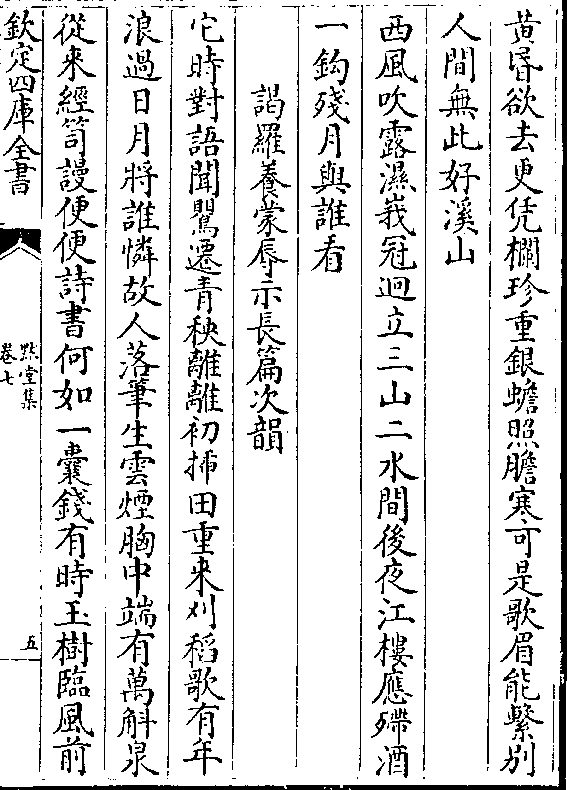 黄昏欲去更凭欄珍重銀蟾照膽寒可是歌眉能繫别
人間無此好溪山
西風吹露濕峩冠迥立三山二水間後夜江樓應殢酒
一鈎殘月與誰看
謁羅養蒙辱示長篇次韻
它時對語聞鶯遷青秧離離初挿田重来刈稻歌有年
浪過日月將誰憐故人落筆生雲煙胸中端有萬斛泉
從来經笥謾便便詩書何如一囊錢有時玉樹臨風前
欽定四庫全書
默堂集
卷七
五